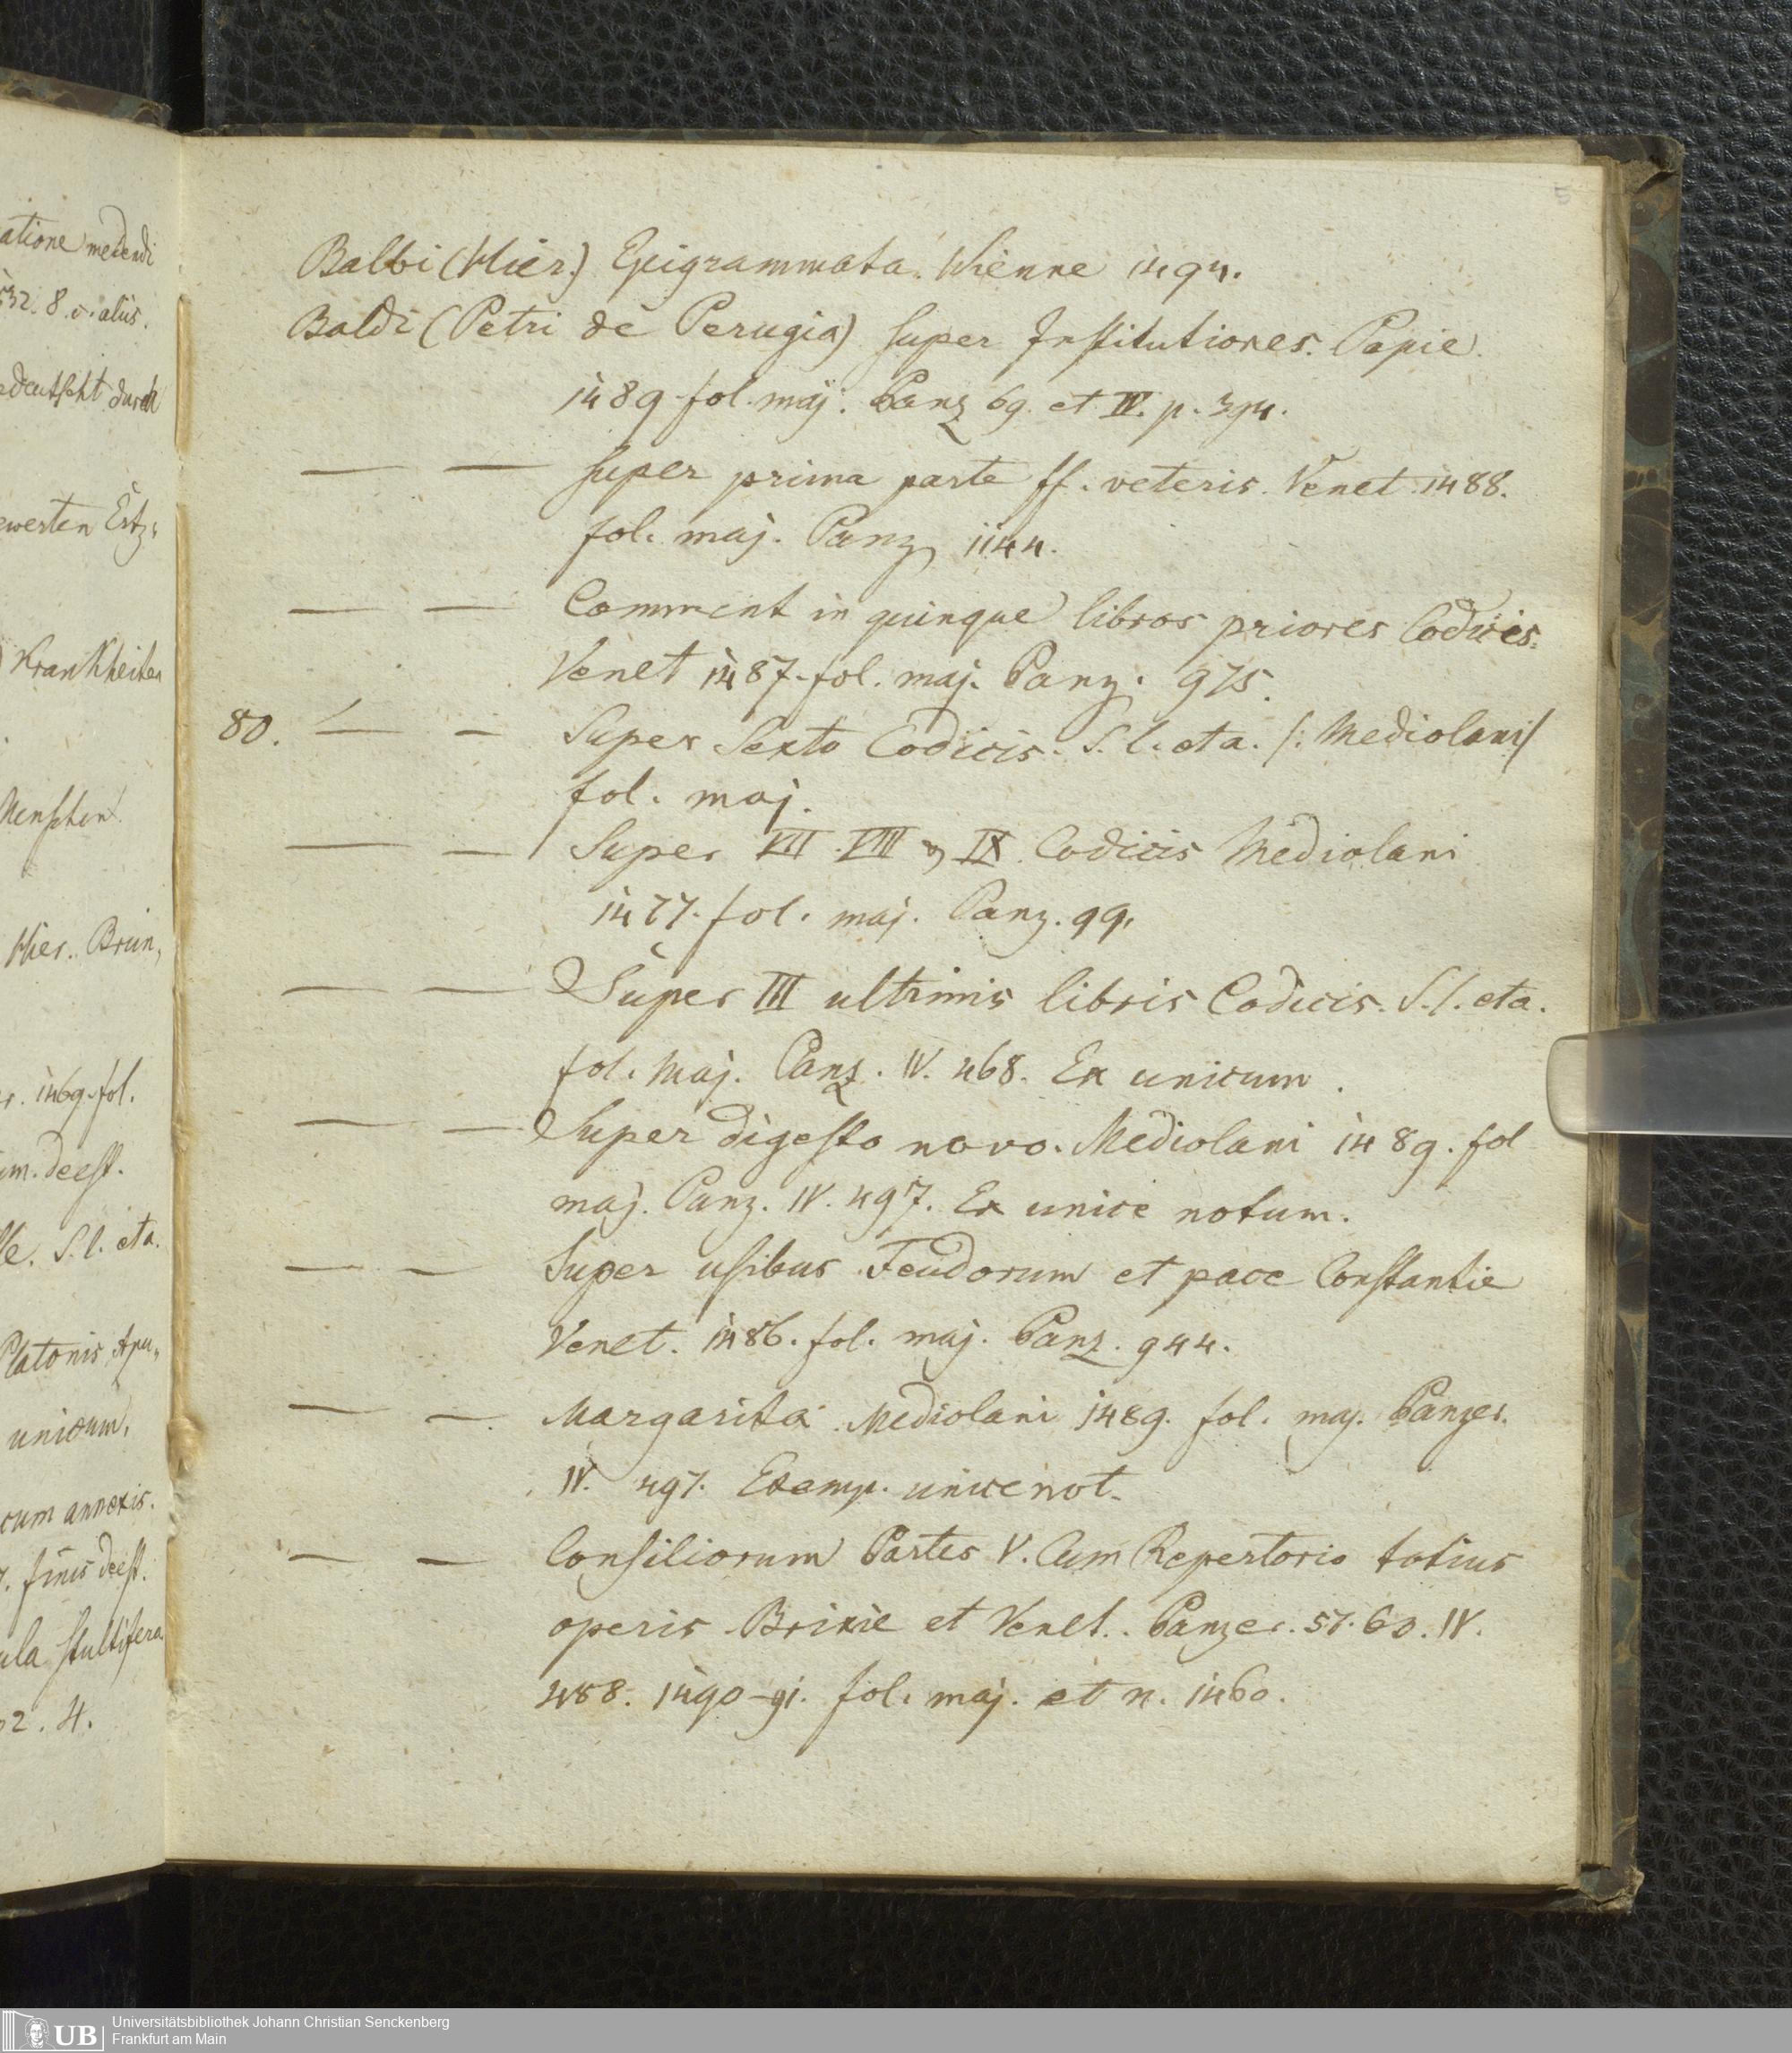 atione medendi
532. 8. c. aliis.
deutscht durch
ewerten Ertz,
Krankheiten
Menschen.
Hier. Brun,
r. 1469. fol.
um. deest.
lle. S. l. eta.
Platonis Apu,
unicum,
cum annexis.
7. finis deest.
ula stultifera
02. 4.
5
Balbi (Hier.) Epigrammata. Wienne 1494.
Baldi (Petri de Perugia) super Institutiones. Papie.
1489. fol. maj. Panz 69. et IV. p. 394.
— — super prima parte ff. veteris. Venet. 1488.
fol. maj. Panz 1144.
— — Comment in quinque libros priores Codicis.
Venet 1487. fol. maj. Panz. 975.
80. — — Super Sexto Codicis. S. l. eta. /: Mediolani/
fol. maj.
— — Super VII. VIII & IX. Codicis Mediolani
1477. fol. maj. Panz. 99.
— — Super III ultimis libris Codicis. S. l. eta.
fol. maj. Panz. IV. 468. Ex unicum.
— — Super digesto novo. Mediolani 1489. fol
maj. Panz. IV. 497. Ex unice notum.
— — Super usibus Feudorum et pace Constantie
Venet. 1486. fol. maj. Panz. 944.
— — Margarita. Mediolani 1489. fol. maj. Panzer.
IV. 497. Exemp. unice not.
— — Consiliorum Partes V. Cum Repertorio totius
operis Brixie et Venet. Panzer. 57. 60. IV.
458. 1490-91. fol. maj. et n. 1460.
UB
Universitätsbibliothek Johann Christian Senckenberg
Frankfurt am Main